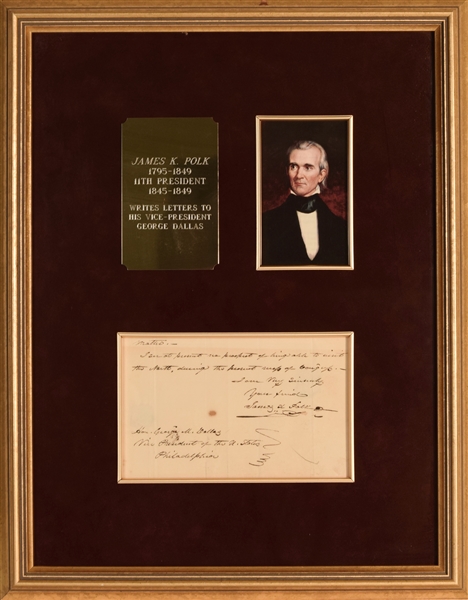 JAMES K. POLK
1795-1849
11TH PRESIDENT
1845-1849
WRITES LETTERS TO
HIS VICE-PRESIDENT
GEORGE DALLAS
I see at present no prospect of being able to visit
the North, during the present recess of Congress.—
I am Very Sincerely
Your friend
James K. Polk
Hon. George M. Dallas
Vice President of the U. States
Philadelphia